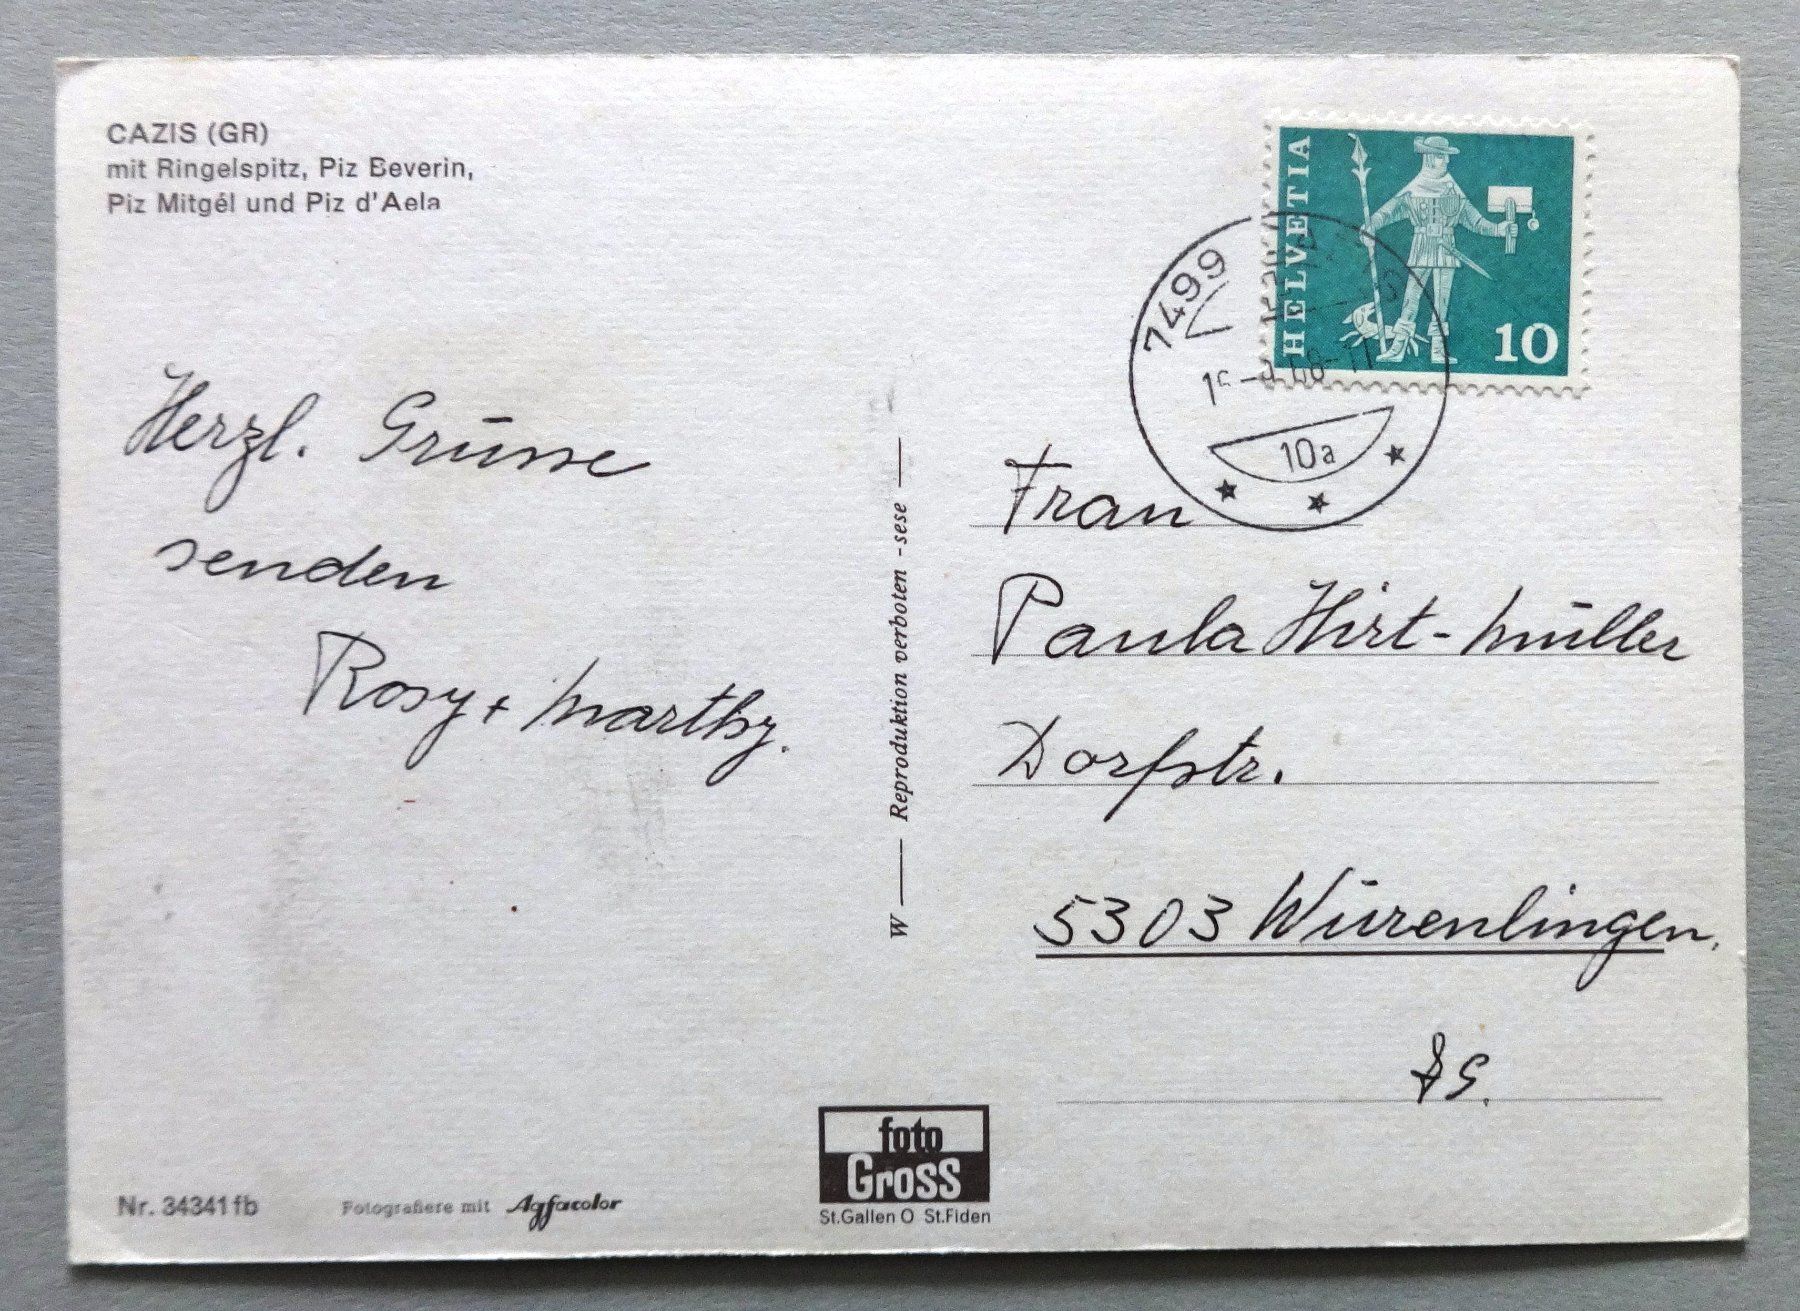 CAZIS (GR)
mit Ringelspitz, Piz Beverin,
Piz Mitgél und Piz d'Aela
HELVETIA
10
7499
10a
Herzl. Grüsse
senden
Rosy + Marthy.
W — Reproduktion verboten - sese —
Frau
Paula Hirt-Müller
Dorfstr.
5303 Würenlingen.
foto
Gross
St.Gallen O St.Fiden
Nr. 34341fb
Fotografiere mit Agfacolor